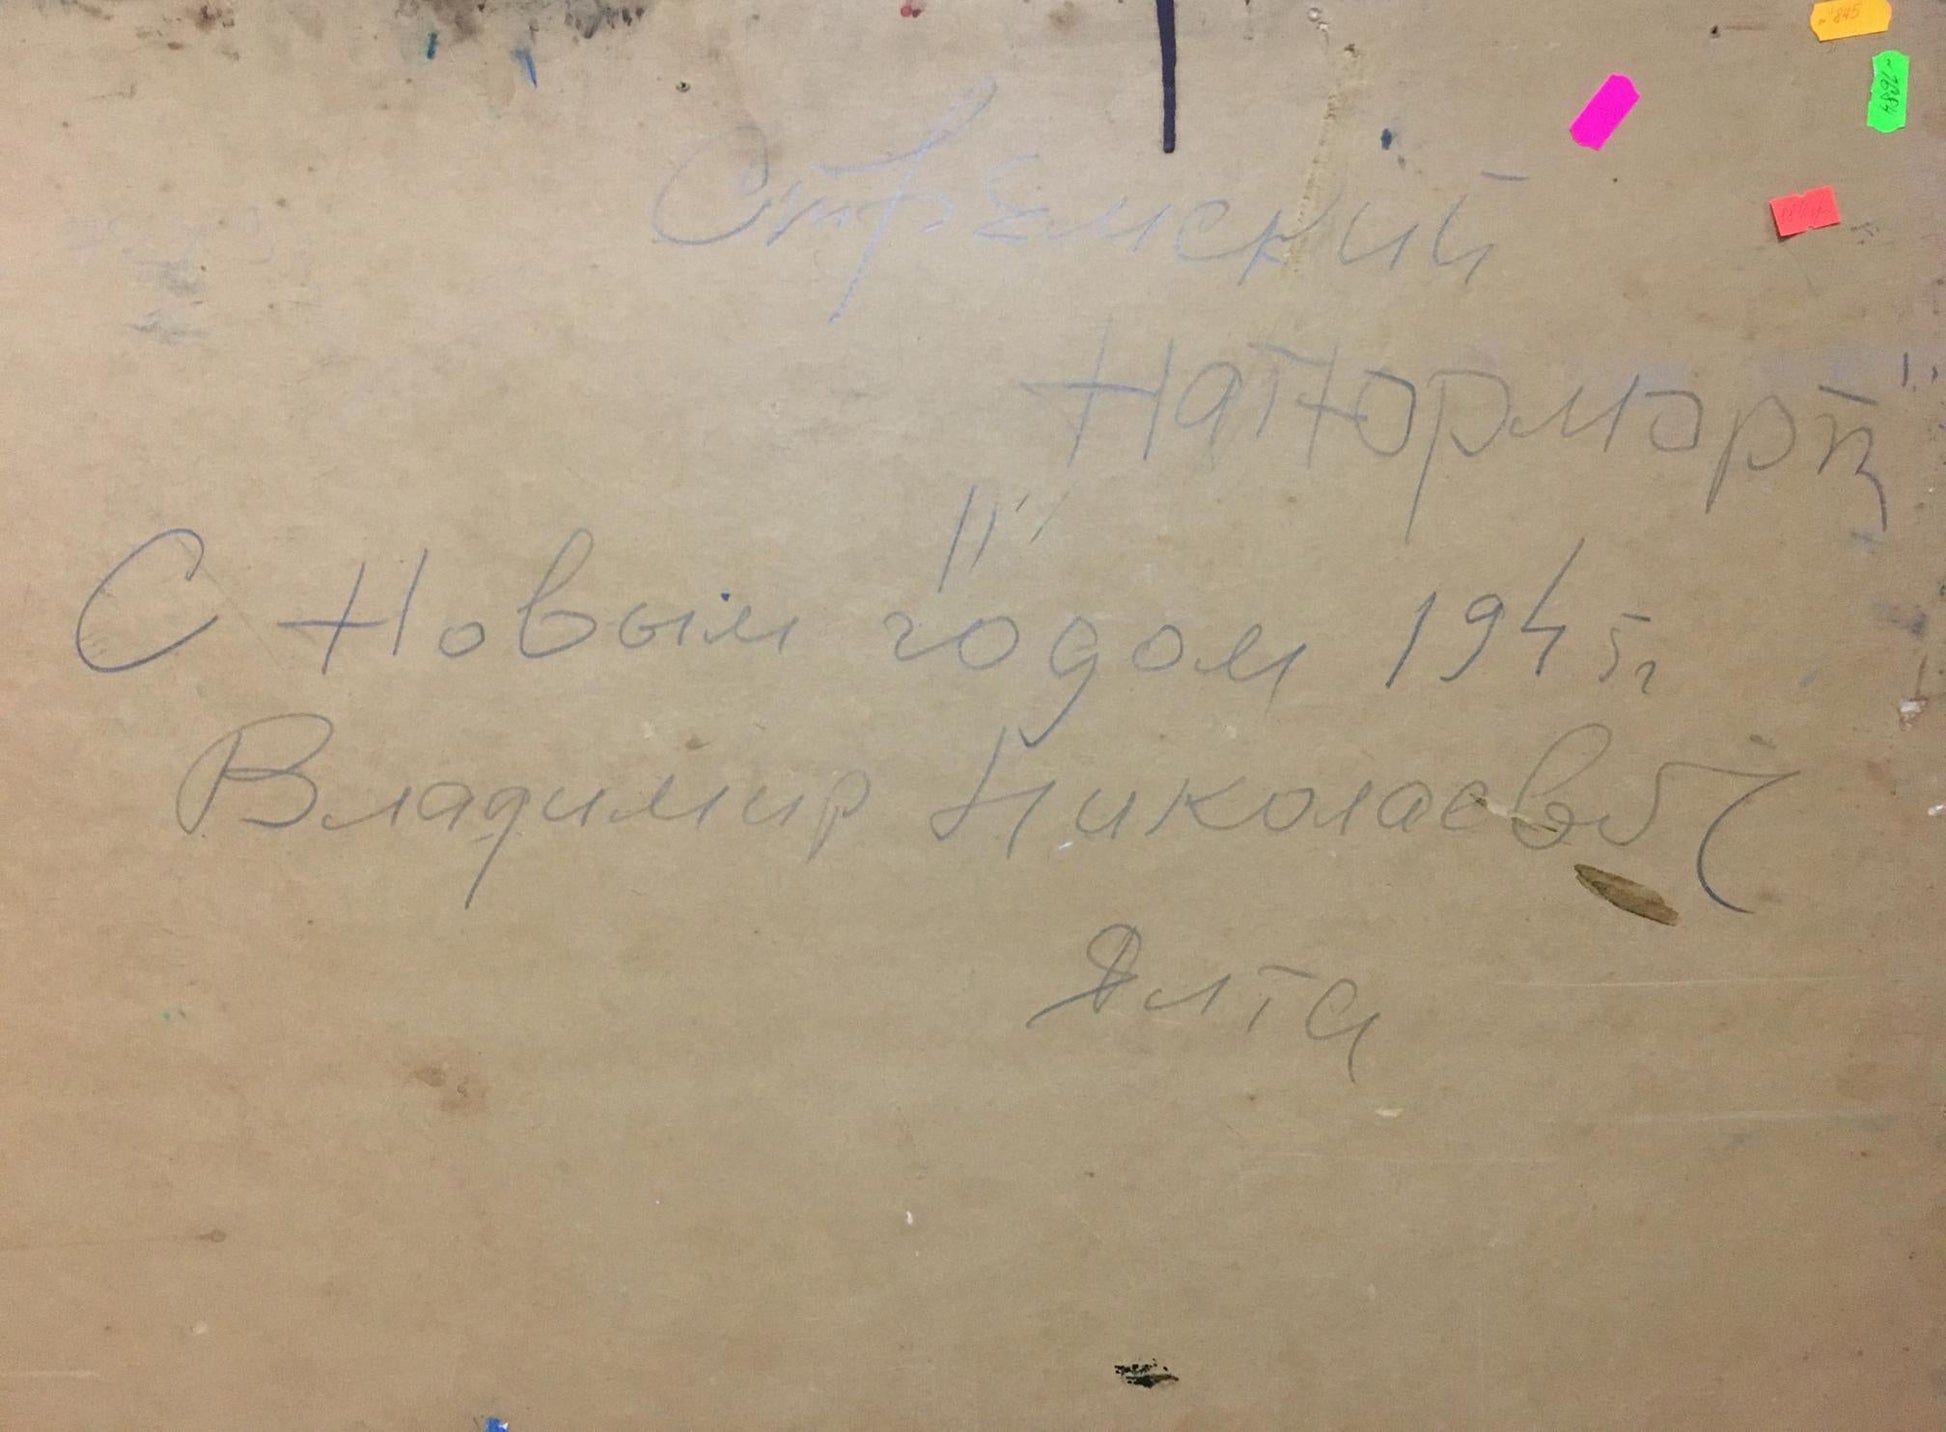 Стремский
Натюрморт
"
С Новым годом 1945г
Владимир Николаевич
Ялта